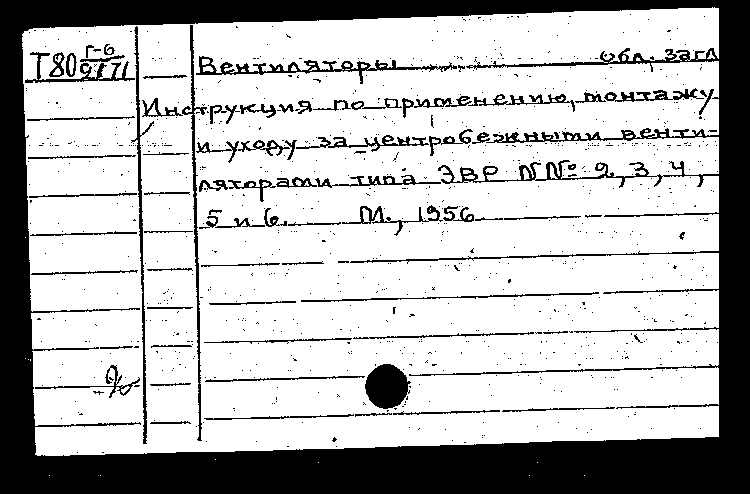 Т80 Г-6
9171
Вентиляторы обл. загл
Инструкция по применению, монтажу
и уходу за центробежными венти-
ляторами типа ЭВР NNº 2, 3, 4,
5 и 6. М., 1956